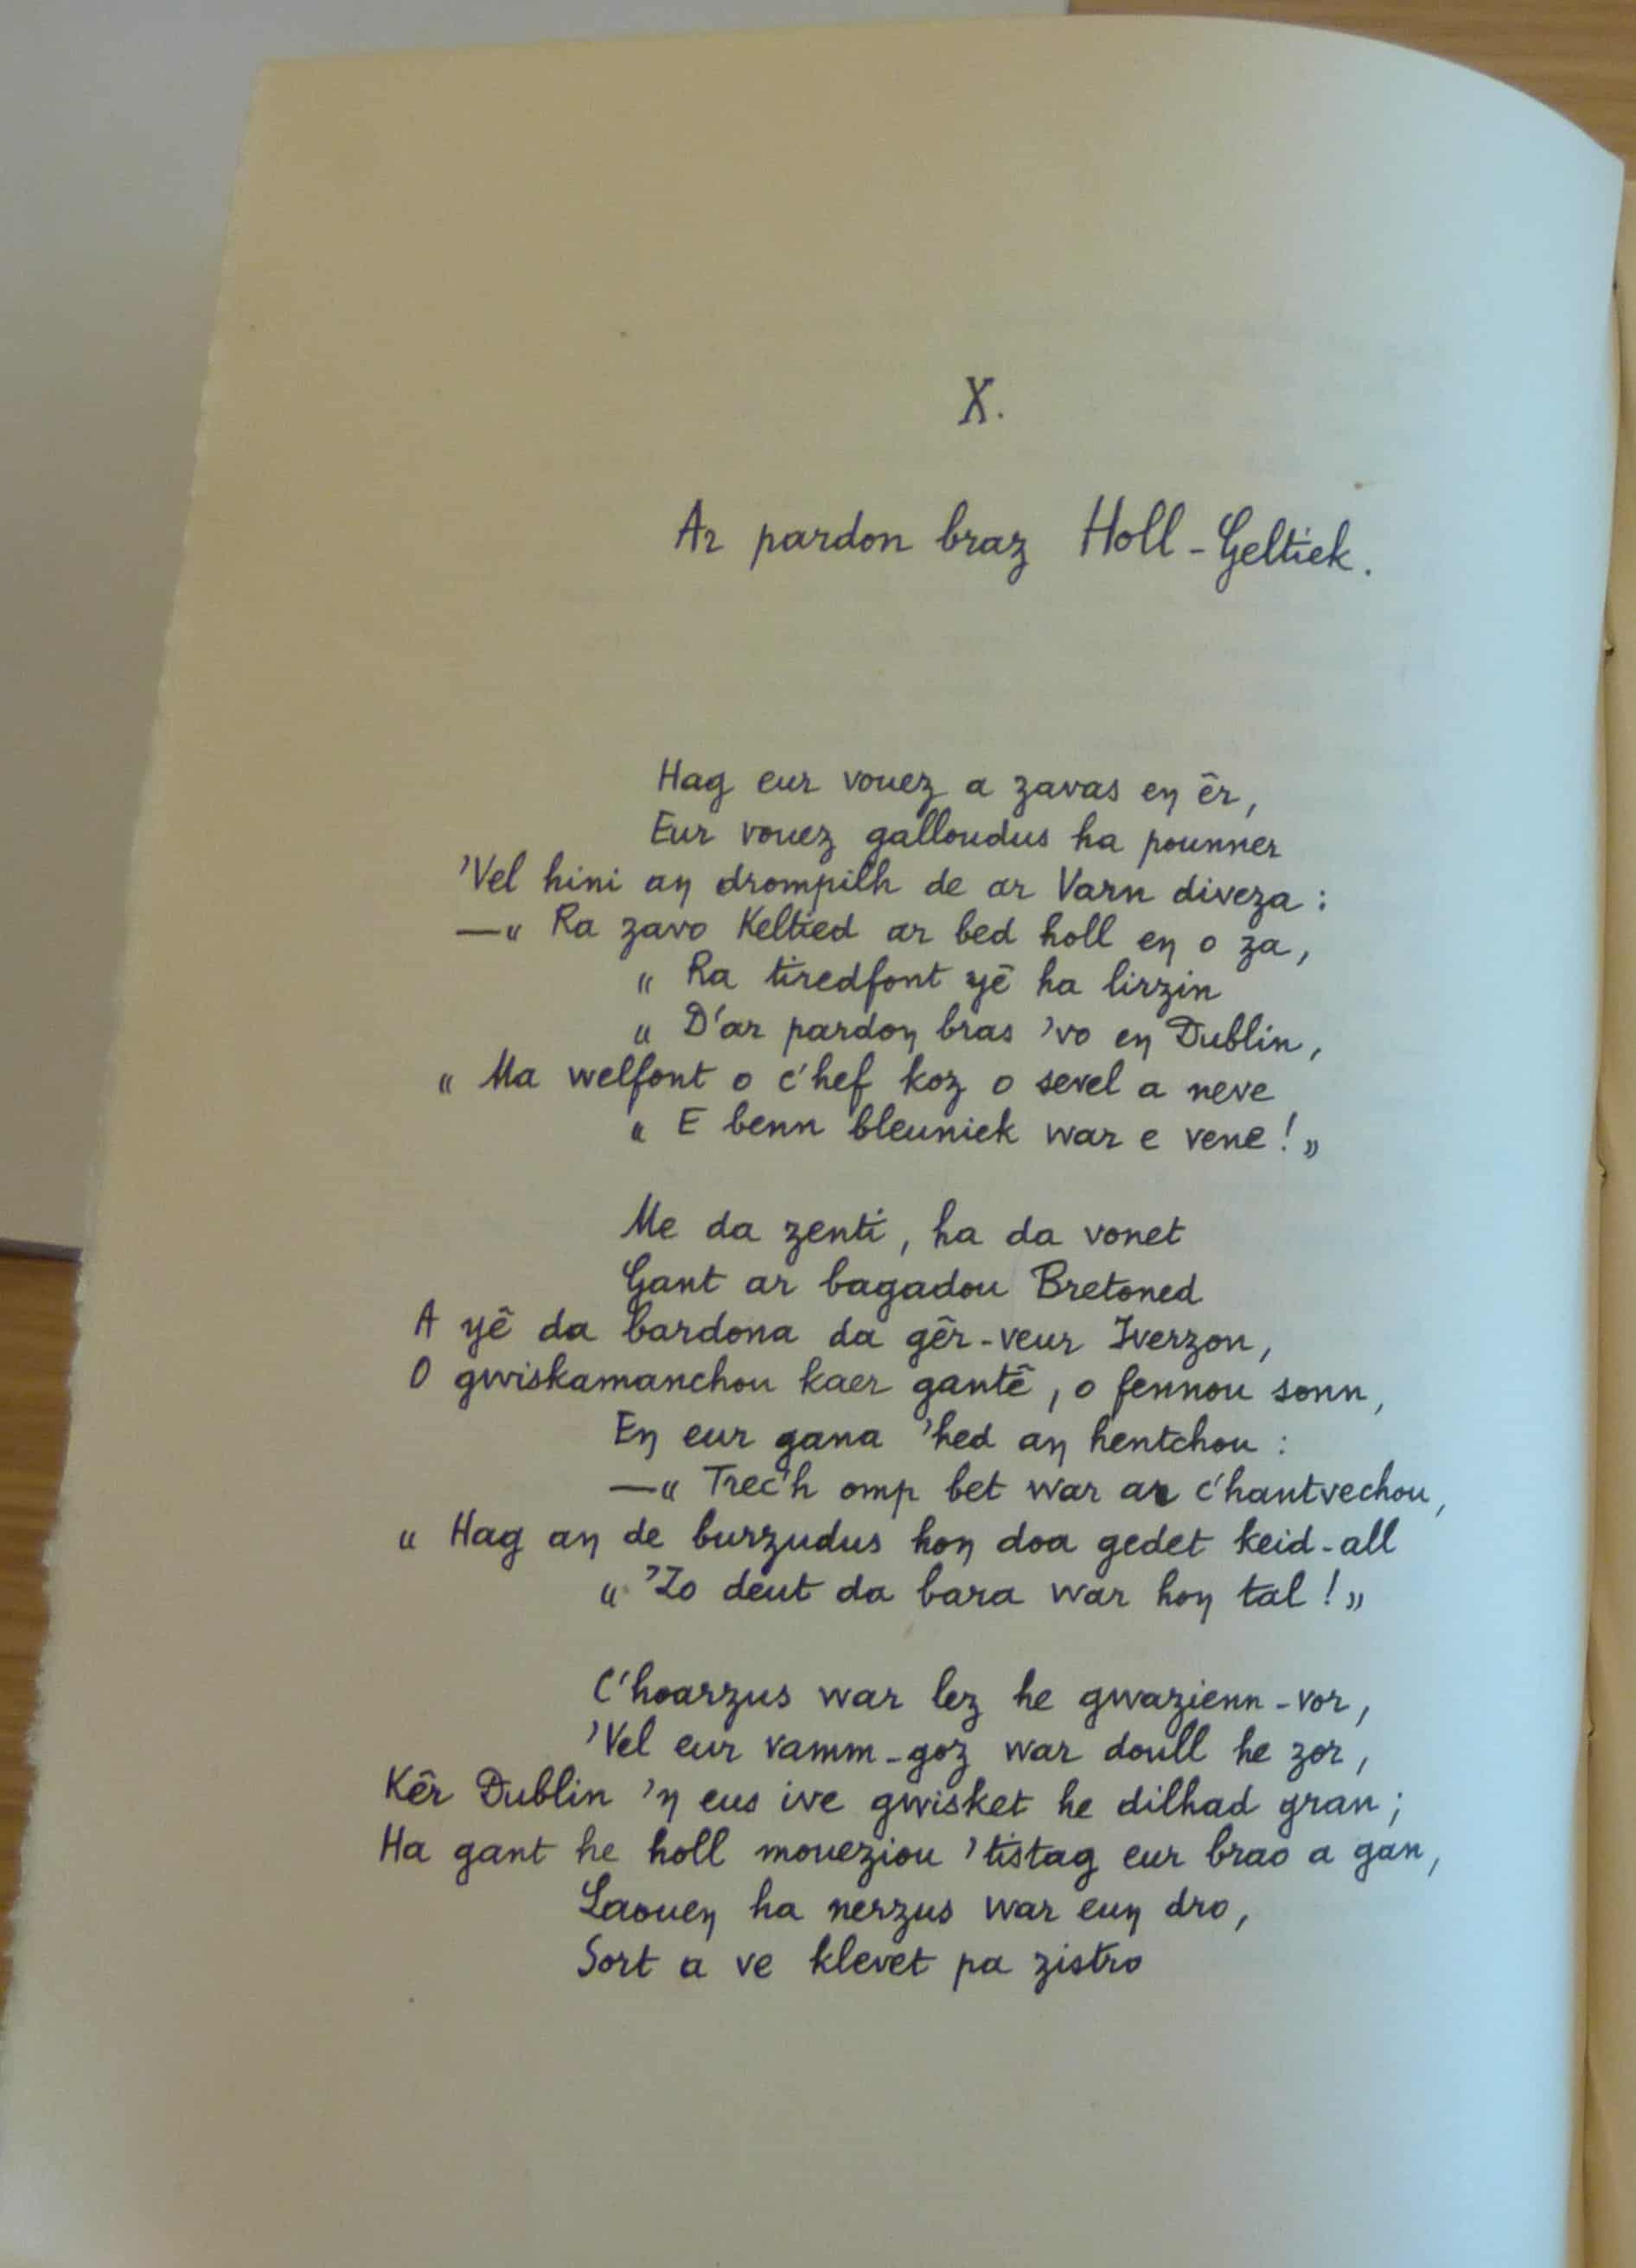 X.
Ar pardon braz Holl-Geltiek.
Hag eur vouez a zavas eŋ êr,
Eur vouez galloudus ha pounner
'Vel hini aŋ drompilh de ar Varn diveza :
—« Ra zavo Keltied ar bed holl eŋ o za,
« Ra tiredfont yê ha lirzin
« D'ar pardoŋ bras 'vo eŋ Dublin,
« Ma welfont o c'hef koz o sevel a neve
« E benn bleuniek war e vene ! »
Me da zenti, ha da vonet
Gant ar bagadou Bretoned
A yê da bardona da gêr-veur Iverzon,
O gwiskamanchou kaer gantê, o fennou sonn,
Eŋ eur gana 'hed aŋ hentchou :
—« Trec'h omp bet war ar c'hantvechou,
« Hag aŋ de burzudus hoŋ doa gedet keid-all
« 'Zo deut da bara war hoŋ tal ! »
C'hoarzus war lez he gwazienn-vor,
'Vel eur vamm-goz war doull he zor,
Kêr Dublin 'ŋ eus ive gwisket he dilhad gran ;
Ha gant he holl moueziou 'tistag eur brao a gan,
Laoueŋ ha nerzus war euŋ dro,
Sort a ve klevet pa zistro